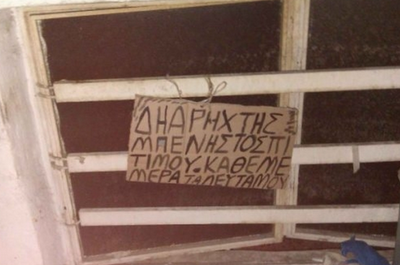 ΔΗΑΡΗΧΤΗΣ
ΜΠΕΝΗΣΤΟΣΠΙ
ΤΙΜΟΥ.ΚΑΘΕΜΕ
ΜΕΡΑ ΤΑΛΕΥΤΑΜΟΥ